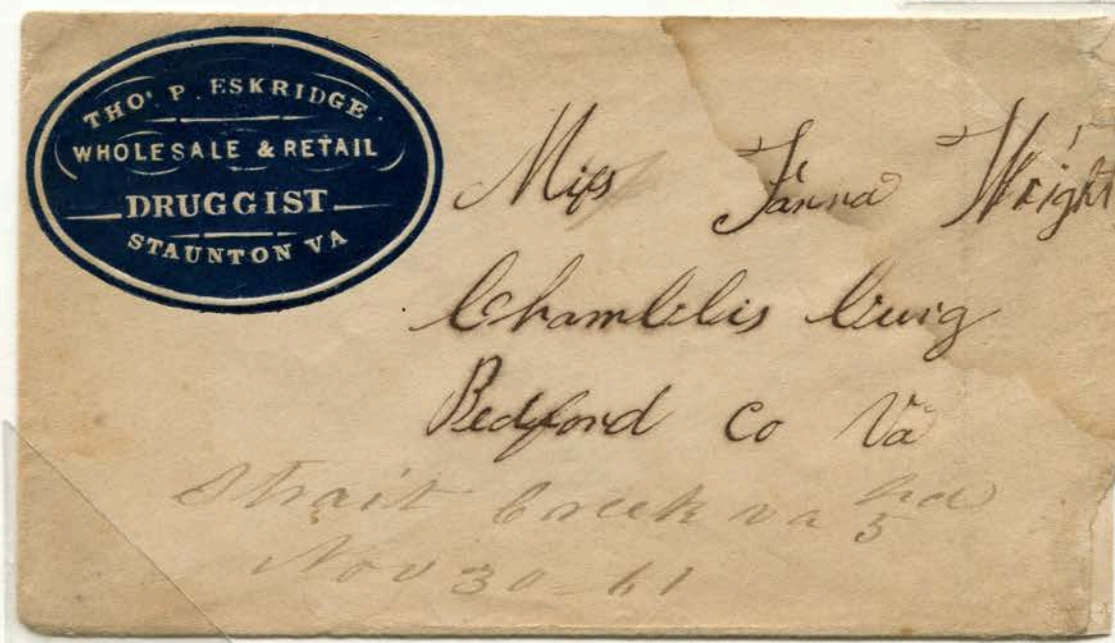 THOS. P. ESKRIDGE.
WHOLESALE & RETAIL
DRUGGIST
STAUNTON VA
Miss Fanna Wright
Bedford Co Va
Strait Creek va
5
Nov 30 - 61